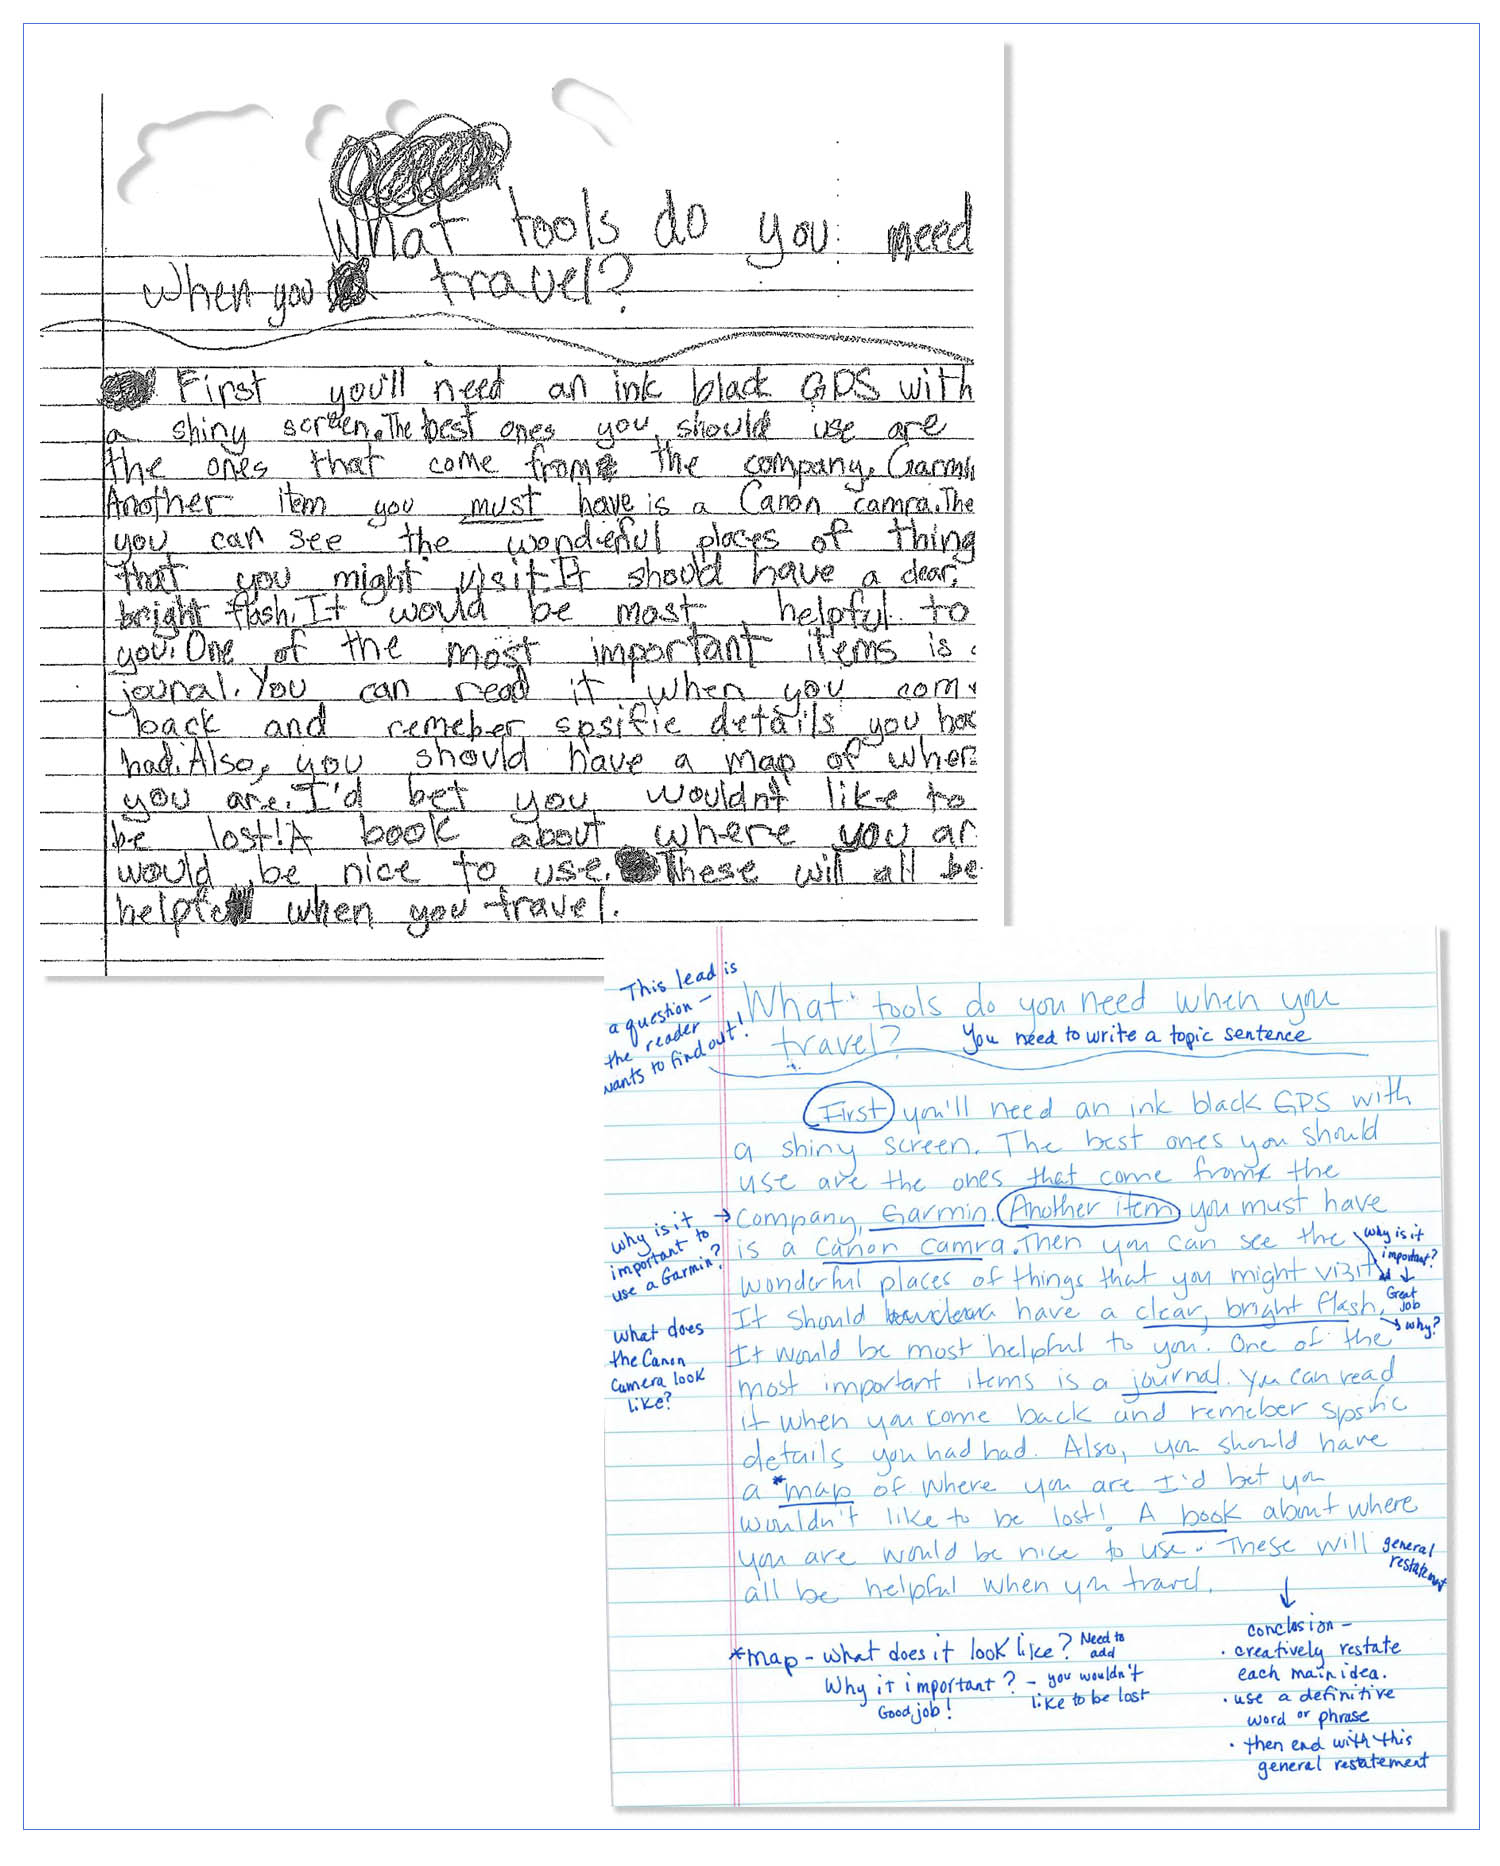 What tools do you need
when you travel?
First you'll need an ink black GPS with
a shiny screen. The best ones you should use are
the ones that come from the company, Garmin
Another item you must have is a Canon camra. The
you can see the wonderful places of thing
that you might visit. It should have a clear,
bright flash. It would be most helpful to
you. One of the most important items is
journal. You can read it when you com
back and remeber spsific details you ha
had. Also, you should have a map of wher
you are. I'd bet you wouldn't like to
be lost! A book about where you ar
would be nice to use. These will all be
helpful when you travel.
This lead is
a question -
the reader
wants to find out!
What tools do you need when you
travel? You need to write a topic sentence
First you'll need an ink black GPS with
a shiny screen. The best ones you should
use are the ones that come from the
company, Garmin. Another item you must have
is a Canon camra. Then you can see the
wonderful places of things that you might vizit
It should have a clear, bright flash,
It would be most helpful to you. One of the
most important items is a journal. You can read
it when you come back and remeber spsific
details you had had. Also, you should have
a *map of where you are I'd bet you
wouldn't like to be lost! A book about where
you are would be nice to use. These will
all be helpful when you travel.
why is it
important to
use a Garmin?
what does
the Canon
camera look
like?
why is it
important?
Great
job
why?
general
restatement
*map - what does it look like? Need to
add
Why it important? - you wouldn't
like to be lost
Good job!
conclusion -
• creatively restate
each main idea.
• use a definitive
word or phrase
• then end with this
general restatement